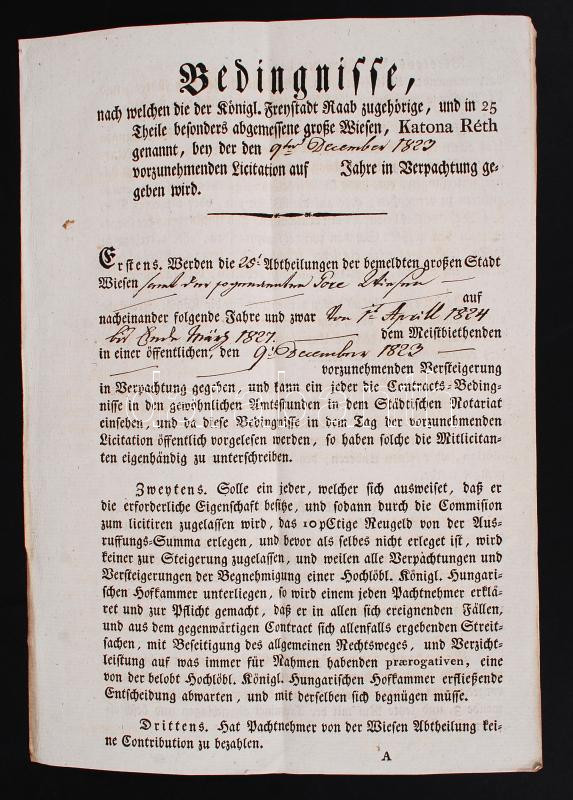 Bedingnisse,
nach welchen die der Königl. Freystadt Raab zugehörige, und in 25
Theile besonders abgemessene große Wiesen, Katona Réth
genannt, bey der den 9ten December 1823
vorzunehmenden Licitation auf Jahre in Verpachtung ge-
geben wird.
Erstens. Werden die 25t Abtheilungen der bemeldten großen Stadt
Wiesen samt der sogenannten Wiesen auf
nacheinander folgende Jahre und zwar von 1t Aprill 1824
bis Ende März 1827. dem Meistbiethenden
in einer öffentlichen, den 9t December 1823
vorzunehmenden Versteigerung
in Verpachtung gegeben, und kann ein jeder die Contracts-Beding-
nisse in den gewöhnlichen Amtsstunden in dem Städtischen Notariat
einsehen, und da diese Bedingnisse in dem Tag der vorzunehmenden
Licitation öffentlich vorgelesen werden, so haben solche die Mitlicitan-
ten eigenhändig zu unterschreiben.
Zweytens. Solle ein jeder, welcher sich ausweiset, daß er
die erforderliche Eigenschaft besitze, und sodann durch die Commision
zum licitiren zugelassen wird, das 10pCtige Reugeld von der Aus-
ruffungs-Summa erlegen, und bevor als selbes nicht erleget ist, wird
keiner zur Steigerung zugelassen, und weilen alle Verpachtungen und
Versteigerungen der Begnehmigung einer Hochlöbl. Königl. Hungari-
schen Hofkammer unterliegen, so wird einem jeden Pachtnehmer erklä-
ret und zur Pflicht gemacht, daß er in allen sich ereignenden Fällen,
und aus dem gegenwärtigen Contract sich allenfalls ergebenden Streit-
sachen, mit Beseitigung des allgemeinen Rechtsweges, und Verzicht-
leistung auf was immer für Nahmen habenden prærogativen, eine
von der belobt Hochlöbl. Königl. Hungarischen Hofkammer erfließende
Entscheidung abwarten, und mit derselben sich begnügen müsse.
Drittens. Hat Pachtnehmer von der Wiesen Abtheilung kei-
ne Contribution zu bezahlen.
A